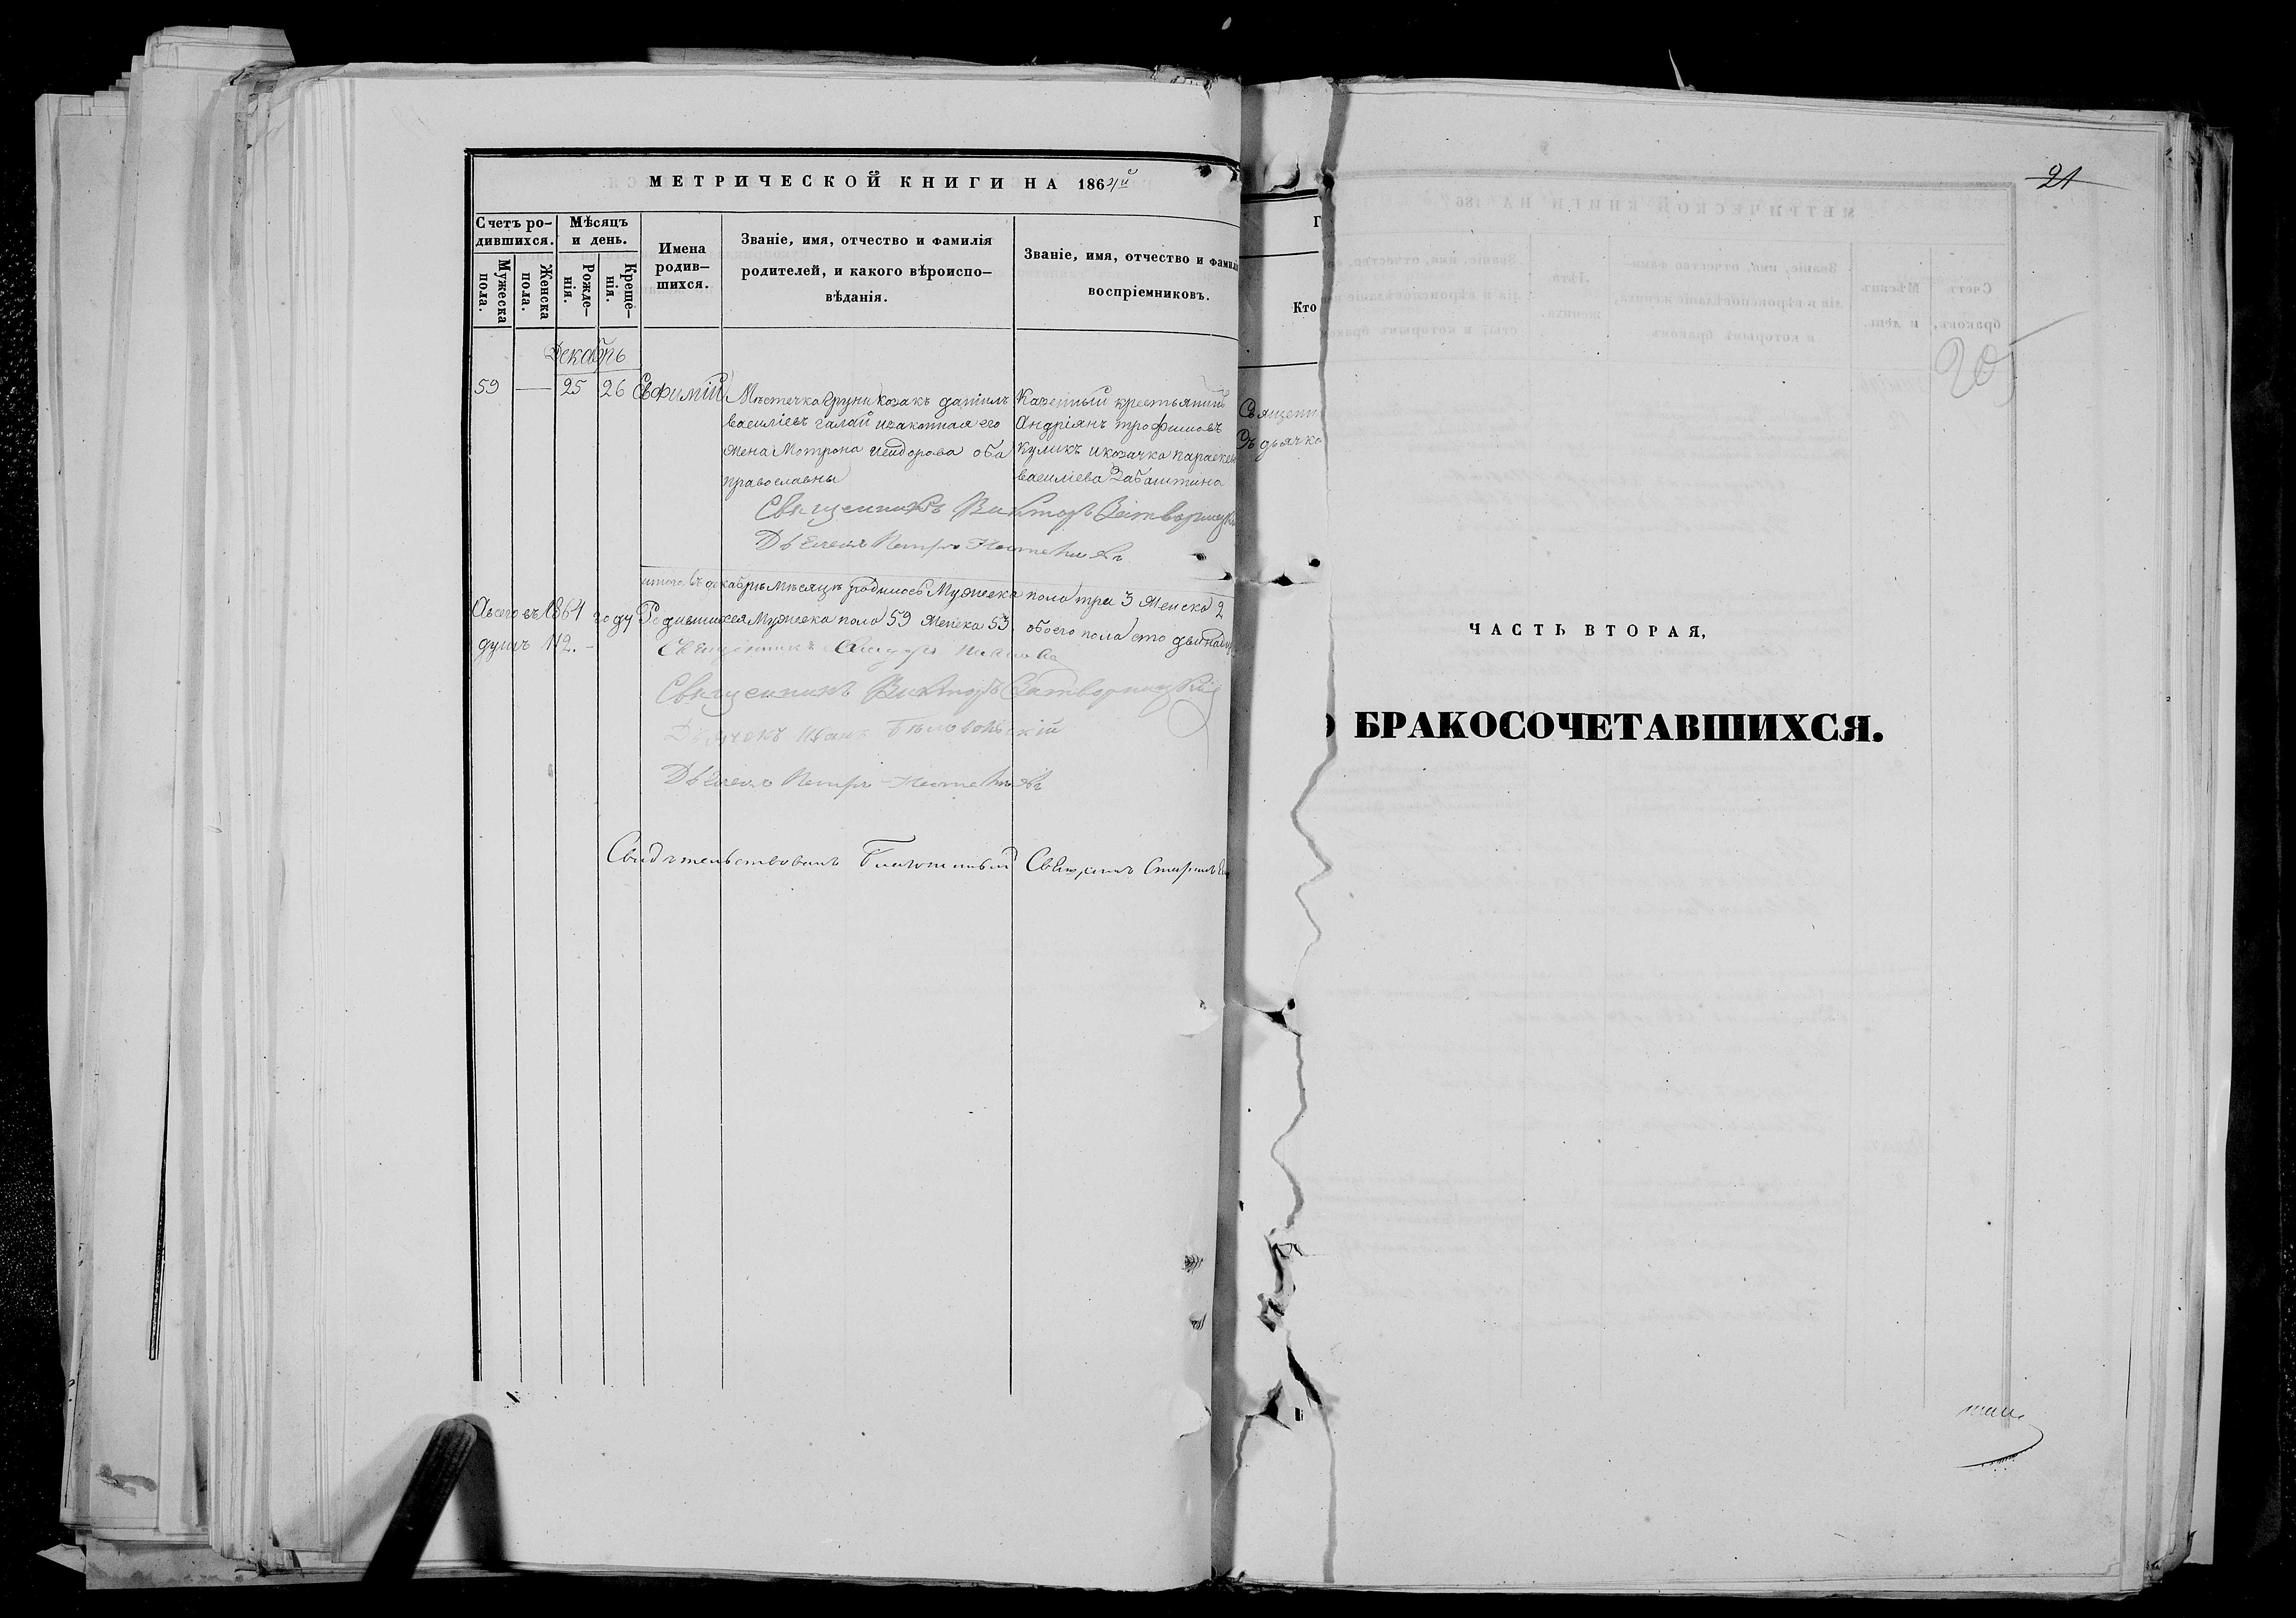 МЕТРИЧЕСКОЙ КНИГИ НА 1864й
Счетъ ро-
дившихся.
Мѣсяцъ
и день.
Мужеска
пола.
Женска
пола.
Рожде-
нія.
Креще-
нія.
Имена
родив-
шихся.
Званіе, имя, отчество и фамилія
родителей, и какого вѣроиспо-
вѣданія.
Званіе, имя, отчество и фамил
воспріемниковъ.
Декабрь
59 — 25 26 Евфимій
Мѣстечка козакъ даніилъ
василіевъ галай изаконная его
жена Мотрона исидорова оба
православны
Казенный крестьянинъ
Андріянъ трофимовъ
Куликъ икозачка параскев
василіева Забаштина
Священникъ Викторъ
Дьячекъ Петръ
итого въ декабрѣ мѣсяцѣ родилось Мужеска пола три 3 Женска 2
Авсего въ 1864 году Родившихся Мужеска пола 59 Женска 53. обоего пола сто двѣнадц
душъ 112. –
Священникъ
Священникъ Викторъ
Дьячекъ Иванъ
Дьячекъ Петръ
Свидѣтельствовалъ
Г
Кто
Священн
Съ дьячко
21
205
ЧАСТЬ ВТОРАЯ,
БРАКОСОЧЕТАВШИХСЯ.